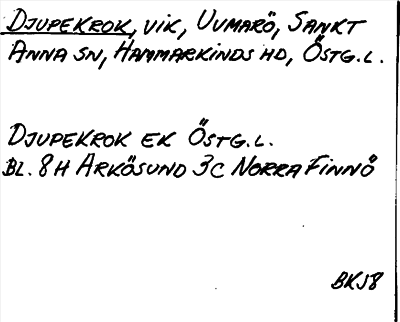 DJUPEKROK, VIK, UVMARÖ, SANKT
ANNA SN, HAMMARKINDS HD, ÖSTG.L.
DJUPEKROK EK ÖSTG.L.
BL. 8H ARKÖSUND 3C NORRA FINNÖ
BKJ8